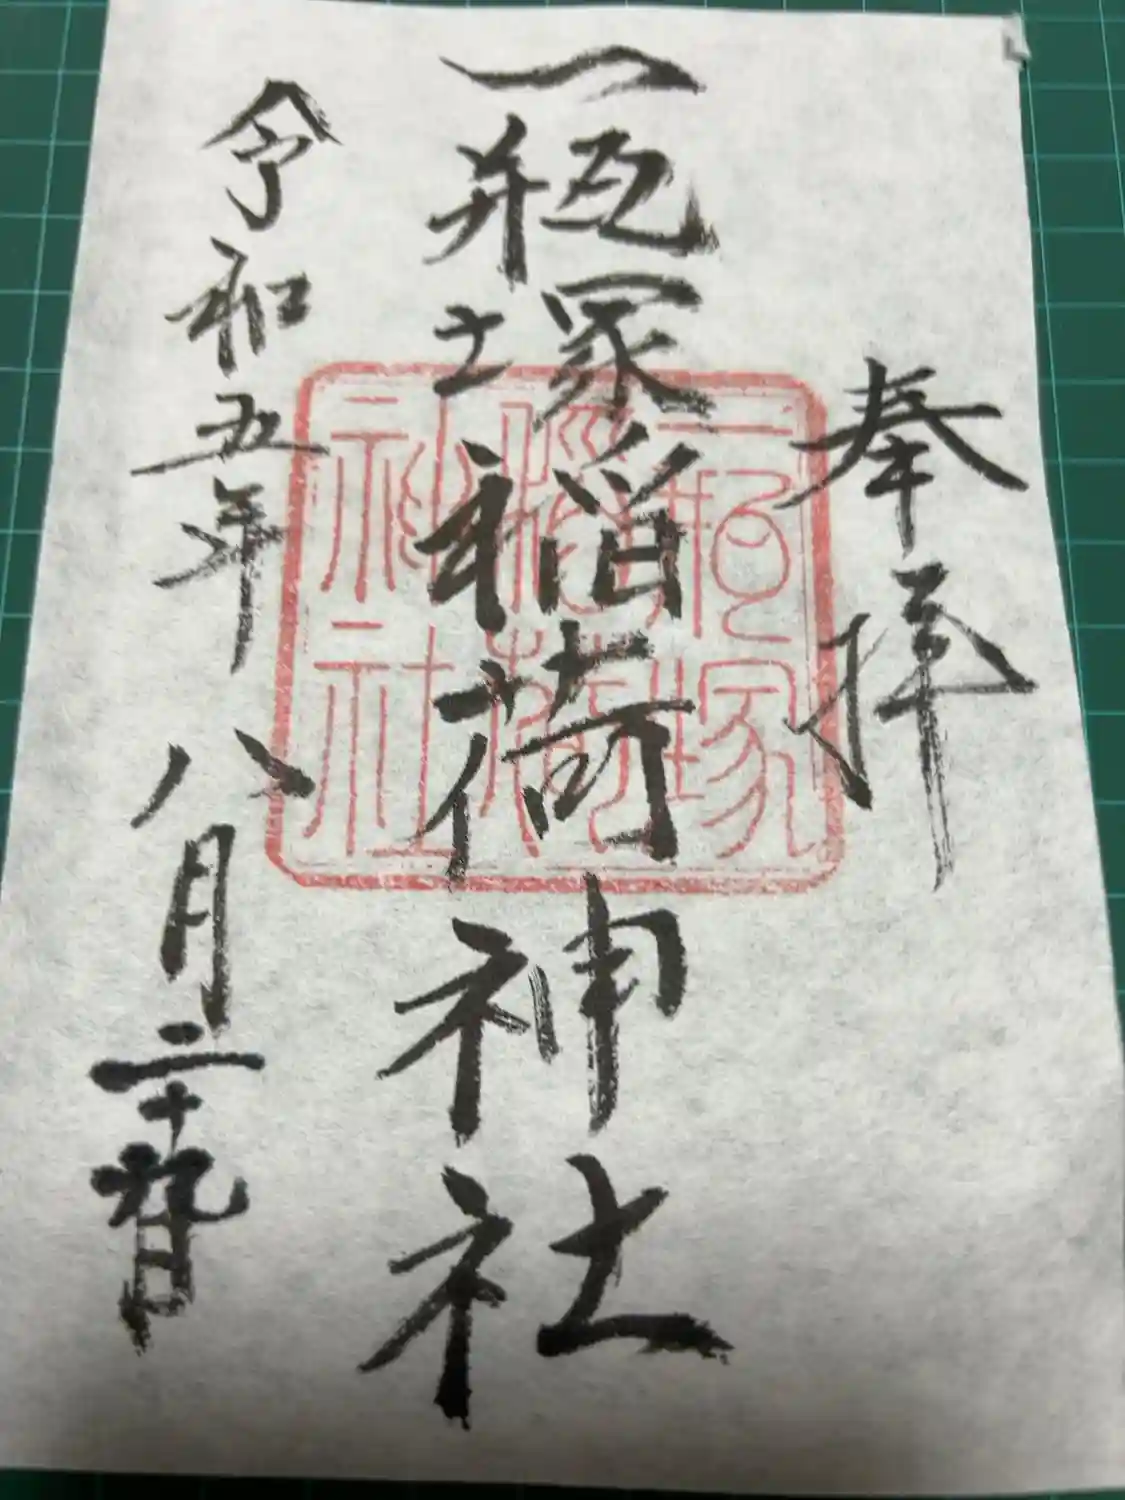 奉拝
一瓶塚稲荷神社
令和五年八月二十九日
一瓶塚
稲荷
神社